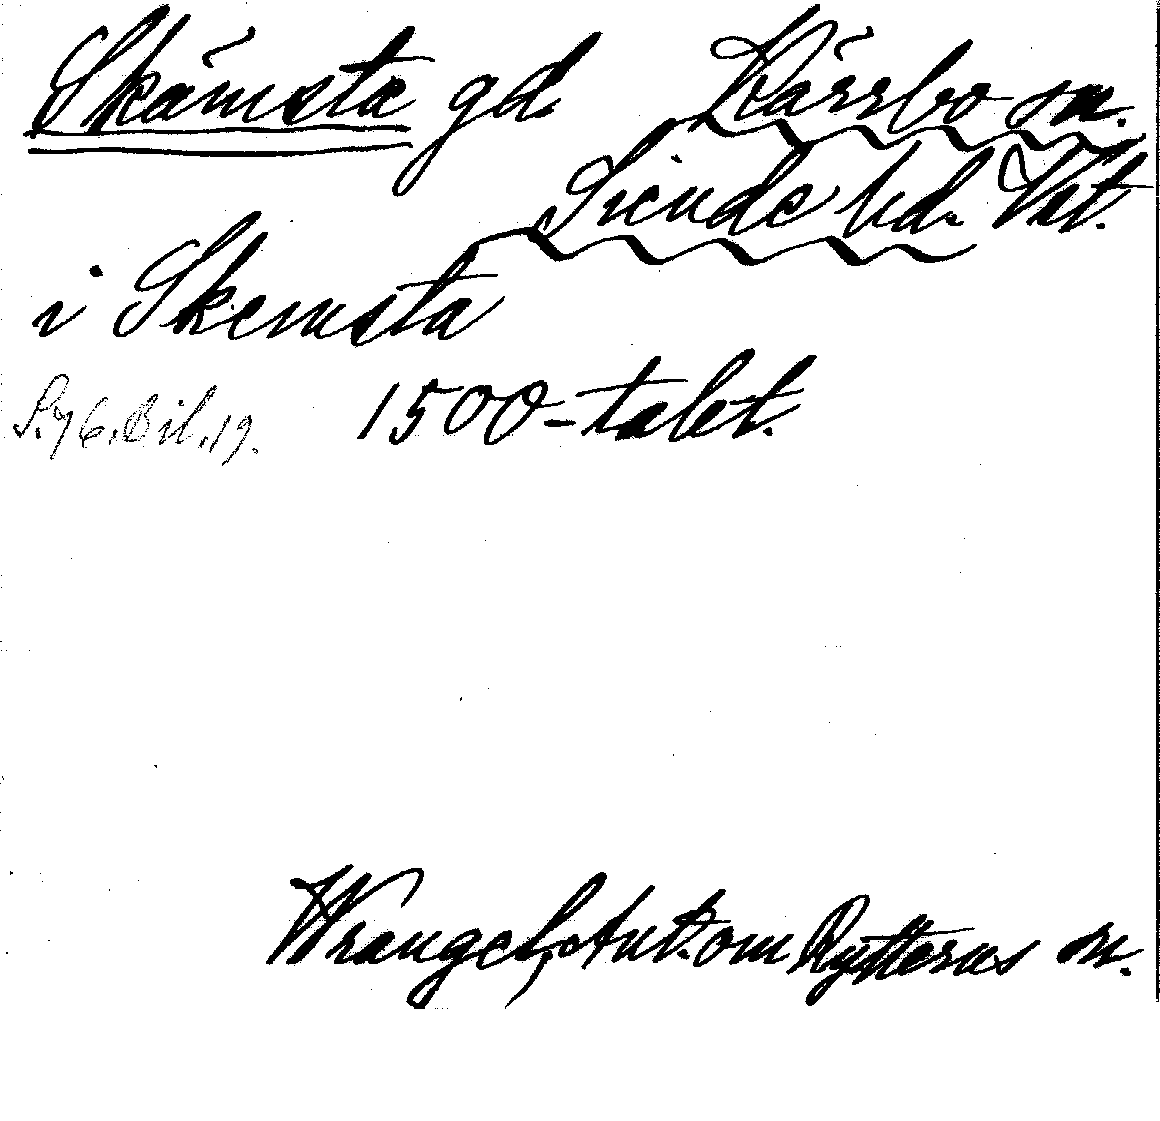 Skämsta gd. Kärrbo sn.
Siende hd. Vstl.
i Skemsta
S. 76. Bil. 19. 1500-talet.
Wrangel, Ant. om Rytterns sn.